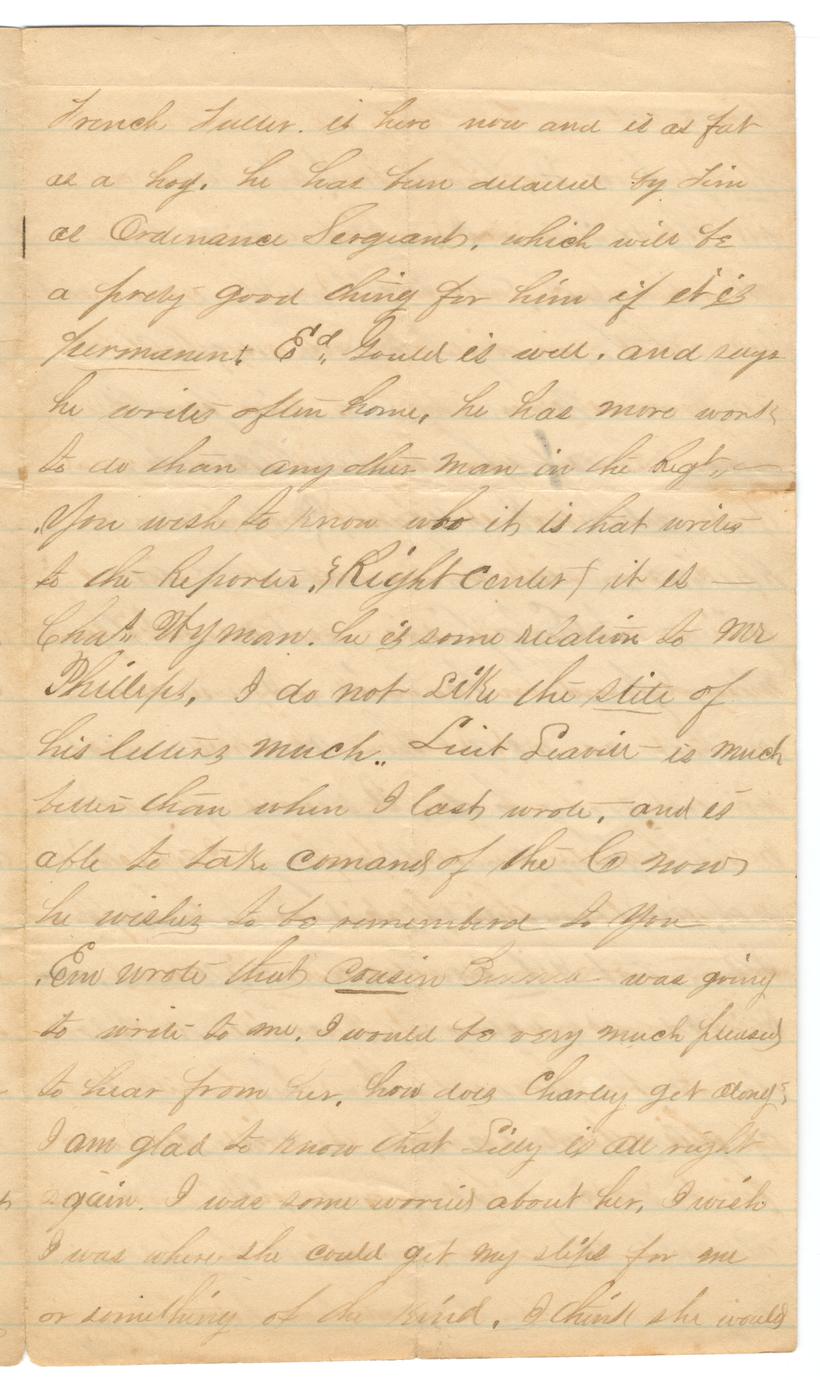 French Fuller. is here now and is as fat
as a hog. he has been detailed by Tim
as Ordenance Sergeant, which will be
a prety good thing for him if it is
permanent Ed,, Gould is well. and says
he writes often home, he has more work
to do than any other man in the Regt,, —
You wish to know who it is that writes
to the Reporter, {Right Center} it is —
Chas Wyman. he is some relation to Mr
Phillips, I do not Like the stile of
his letters much,, Lieut Leavitt is much
better than when I last wrote, and is
able to take comand of the Co now
he wishes to be rememberd to You
Em wrote that Cousin was going
to write to me. I would be very much pleased
to hear from her, how does Charley get along,
I am glad to know that Lilly is all right
again. I was some worried about her, I wish
I was where she could get my slips for me
or something of the kind. I think she would